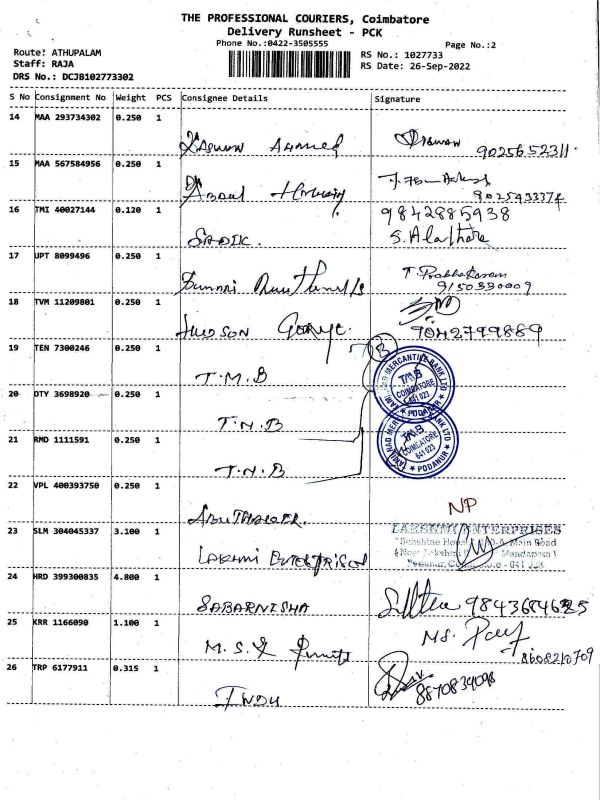 THE PROFESSIONAL COURIERS, Coimbatore
Delivery Runsheet - PCK
Phone No.:0422-3505555
Page No.:2
Route: ATHUPALAM
Staff: RAJA
DRS No.: DCJB102773302
RS No.: 1027733
RS Date: 26-Sep-2022
S No Consignment No Weight PCS Consignee Details Signature
14 MAA 293734302 0.250 1 Ahamed 9025652311
15 MAA 567584956 0.250 1 Abdul 9025433374
16 TMI 40027144 0.120 1 SADIK. 9842885938
17 UPT 8099496 0.250 1 T. Prabhakaran 9150330009
18 TVM 11209801 0.250 1 JUDSON George. 9042799889
19 TEN 7300246 0.250 1 T.M.B 3
TAMIL NAD MERCANTILE BANK LTD
TMB
COIMBATORE
641 023
PODANUR
20 DTY 3698920 0.250 1 T.M.B
TAMIL NAD MERCANTILE BANK LTD
TMB
COIMBATORE
641 023
PODANUR
21 RMD 1111591 0.250 1 T.M.B
22 VPL 400393750 0.250 1 NP
23 SLM 304045337 3.100 1 LAKSHMI ENTERPRISES
Main Road
24 HRD 399300835 4.800 1 SABARNISHA 9843684625
25 KRR 1166090 1.100 1 M.S. MS. 8608210709
26 TRP 6177911 0.315 1 INDU 8870834098